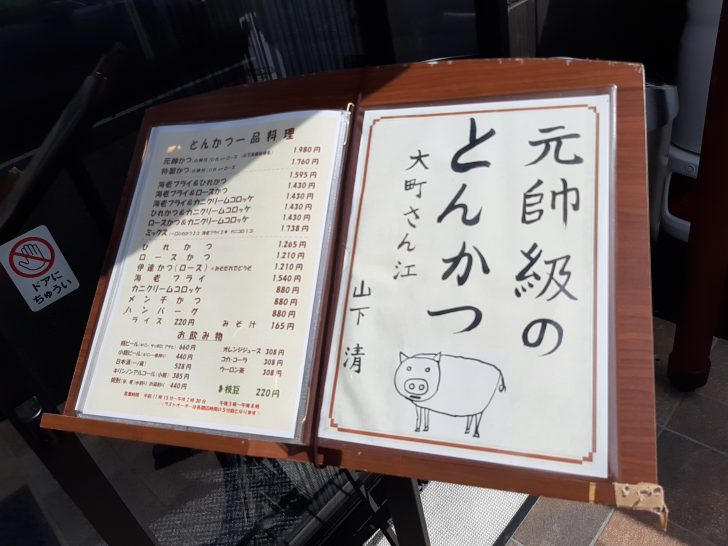 とんかつ一品料理
元帥かつ
1.980円
特製かつ
1.760円
海老フライ&ひれかつ 1.595円
海老フライ&ロースかつ 1.430円
海老フライ&カニクリームコロッケ 1.430円
ひれかつ&カニクリームコロッケ 1.430円
ロースかつ&カニクリームコロッケ 1.430円
ミックス
1.738円
ひれかつ 1.265円
ロースかつ 1.210円
伊達かつ(ロース)
1.210円
海老フライ 1.540円
カニクリームコロッケ 880円
メンチかつ 880円
ハンバーグ 880円
ライス 220円 みそ汁 165円
お飲み物
660円
440円
528円
キリンノンアルコール(小瓶) 385円
440円
オレンジジュース 308円
コカ・コーラ 308円
ウーロン茶 308円
枝豆 220円
元帥級の
とんかつ
大町さん江
山下 清
ドアに
ちゅうい